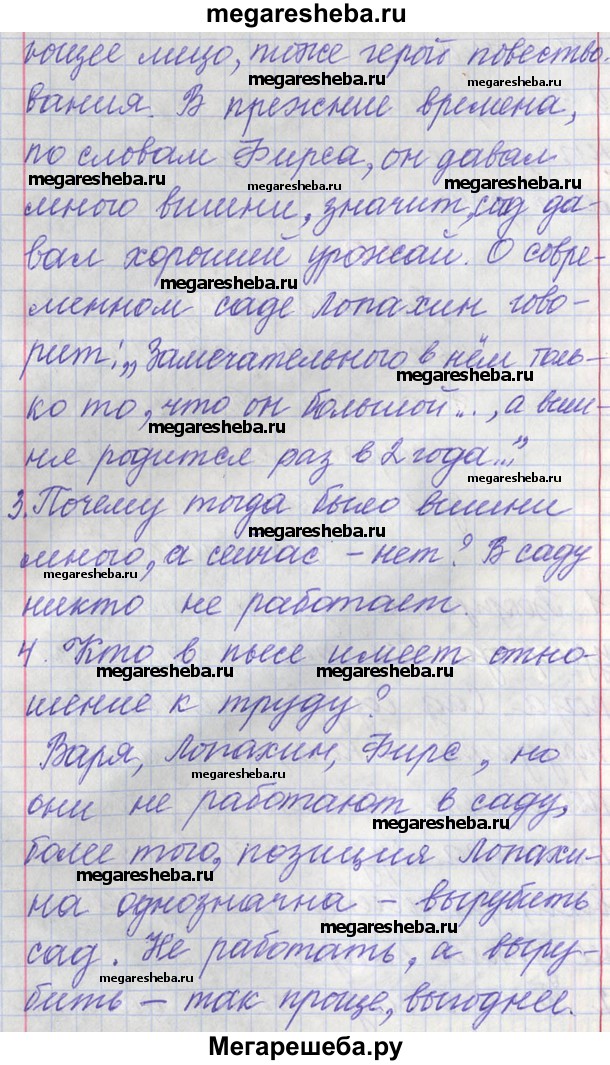 megaresheba.ru
ющее лицо, тоже герой повество-
megaresheba.ru
megaresheba.ru
вания. В прежние времена,
по словам Фирса, он давал
megaresheba.ru
megaresheba.ru
много вишни, значит, сад да-
вал хороший урожай. О совре-
megaresheba.ru
менном саде Лопахин гово-
рит: „Замечательного в нём толь-
megaresheba.ru
ко то, что он большой..., а виш-
megaresheba.ru
ня родится раз в 2 года..."
megaresheba.ru
3. Почему тогда было вишни
megaresheba.ru
много, а сейчас - нет? В саду
megaresheba.ru
megaresheba.ru
никто не работает.
4. Кто в пьесе имеет отно-
megaresheba.ru
megaresheba.ru
шение к труду?
Варя, Лопахин, Фирс, но
megaresheba.ru
они не работают в саду,
megaresheba.ru
более того, позиция Лопахи-
megaresheba.ru
на однозначна - вырубить
megaresheba.ru
сад. Не работать, а выру-
megaresheba.ru
бить - так проще, выгоднее.
Мегарешеба.ру